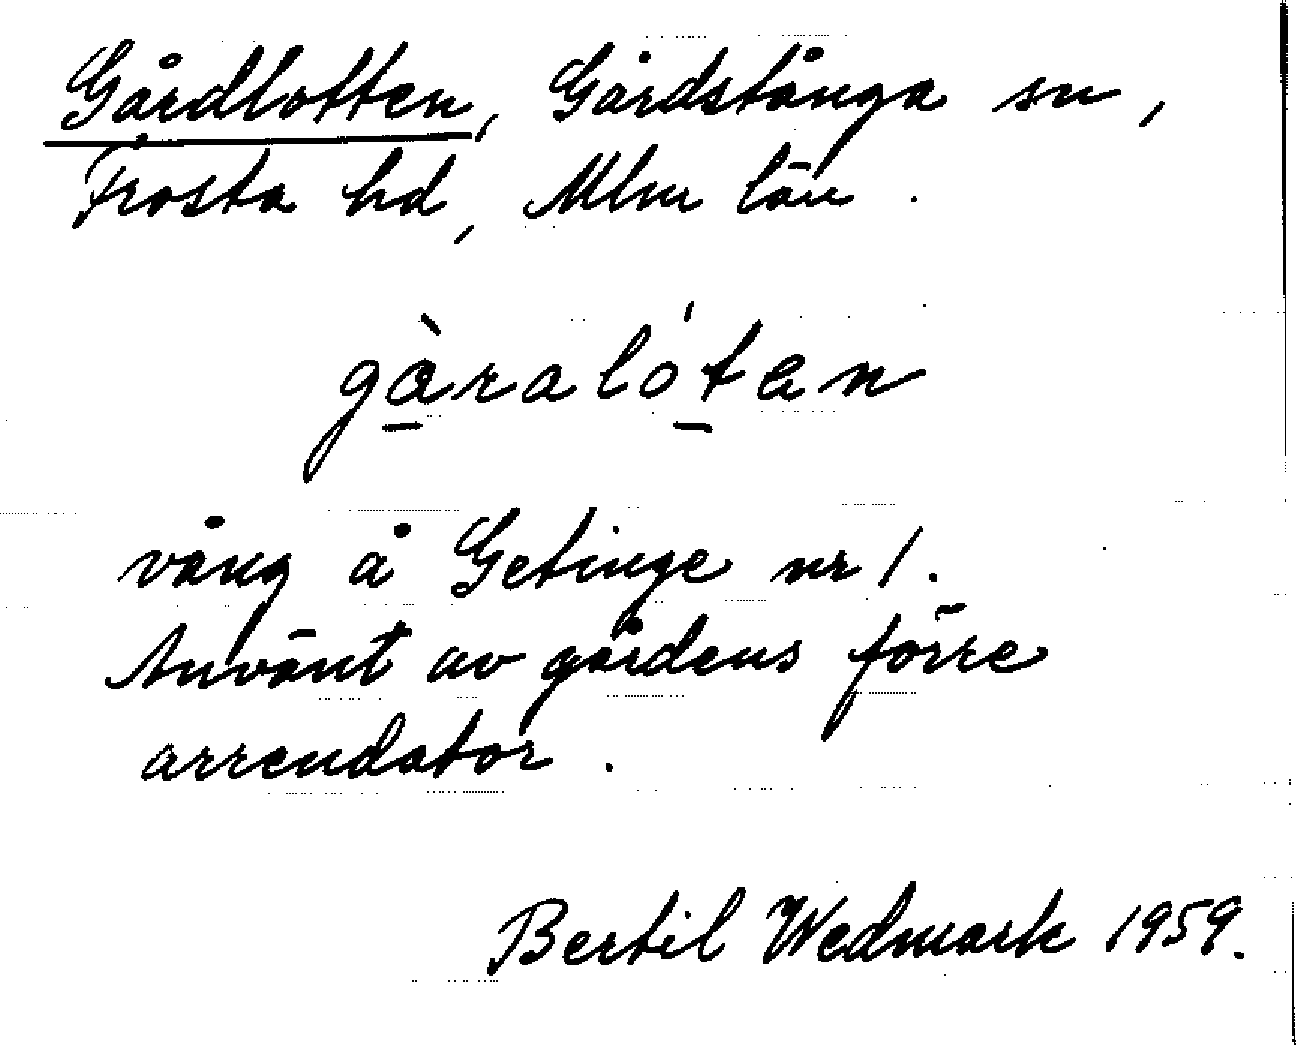 Gårdlotten, Gårdstånga sn,
Frosta hd, Mlm län.
gàralóten
vång å Getinge nr 1.
Använt av gårdens förre
arrendator.
Bertil Wedmark 1959.